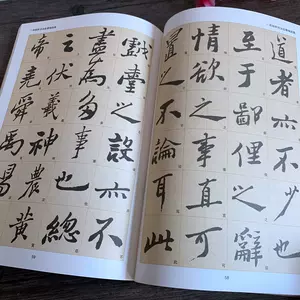 道者亦不少
至于鄙俚之辭
情欲之事直可
置之不論耳此
戲臺之設亦不
盡為多事也總
之伏羲神農黃
帝堯舜禹湯